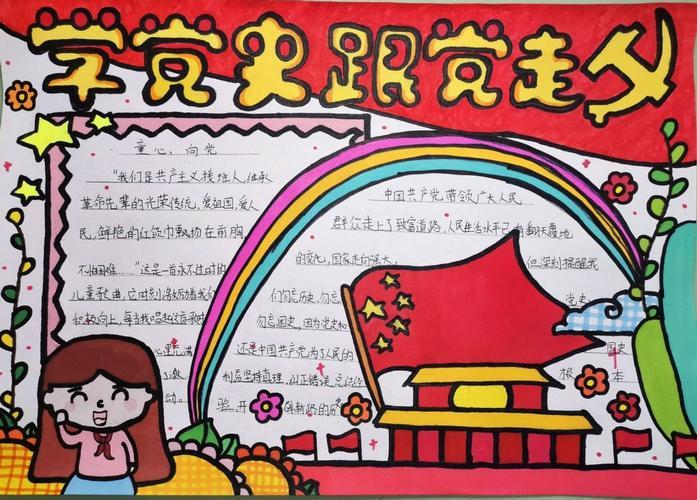 学党史跟党走
童心向党
"我们是共产主义接班人,继承
革命先辈的光荣传统,爱祖国,爱人
民,鲜艳的红领巾飘扬在前胸,
不怕困难……"这是一首永不过时的
儿童歌曲,它时刻激励着我们
积极向上,每当我唱起这首歌时
心里充满
了激
动。
中国共产党带领广大人民
群众走上了致富道路,人民生活水平已有翻天覆地
的变化,国家走向强大,但深刻提醒我
们勿忘历史,勿忘党史
勿忘国史,因为党史和国史
还是中国共产党为了人民的根本
利益坚持真理,纠正错误,总结经
验,开创新路的历史